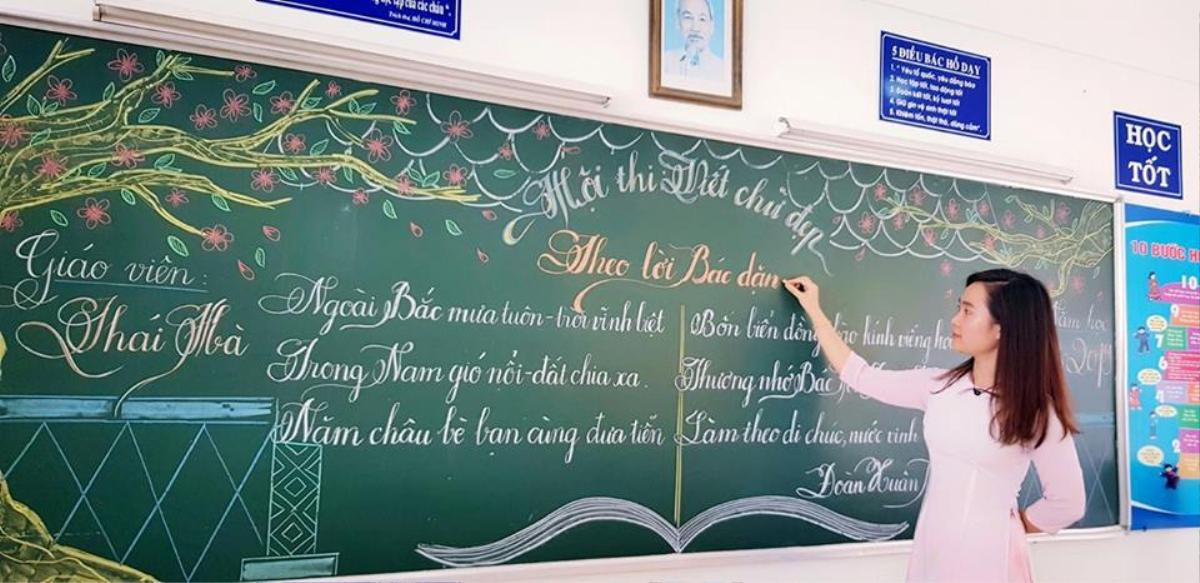 học tập của các cháu".
Trích thư, HỒ CHÍ MINH
5 ĐIỀU BÁC HỒ DẠY
1. "Yêu tổ quốc, yêu đồng bào
2. Học tập tốt, lao động tốt
3. Đoàn kết tốt, kỷ luật tốt
4. Giữ gìn vệ sinh thật tốt
5. Khiêm tốn, thật thà, dũng cảm".
HỌC
TỐT
10 BƯỚC
10
Hội thi Viết chữ đẹp
Theo lời Bác dặn
Giáo viên:
Thái Hà
Ngoài Bắc mưa tuôn - trời vĩnh biệt
Trong Nam gió nổi - đất chia xa.
Năm châu bè bạn cùng đưa tiễn
Bốn biển đồng bào kính viếng
Thương nhớ Bác
Làm theo di chúc, nước vinh
Đoàn Xuân
năm học